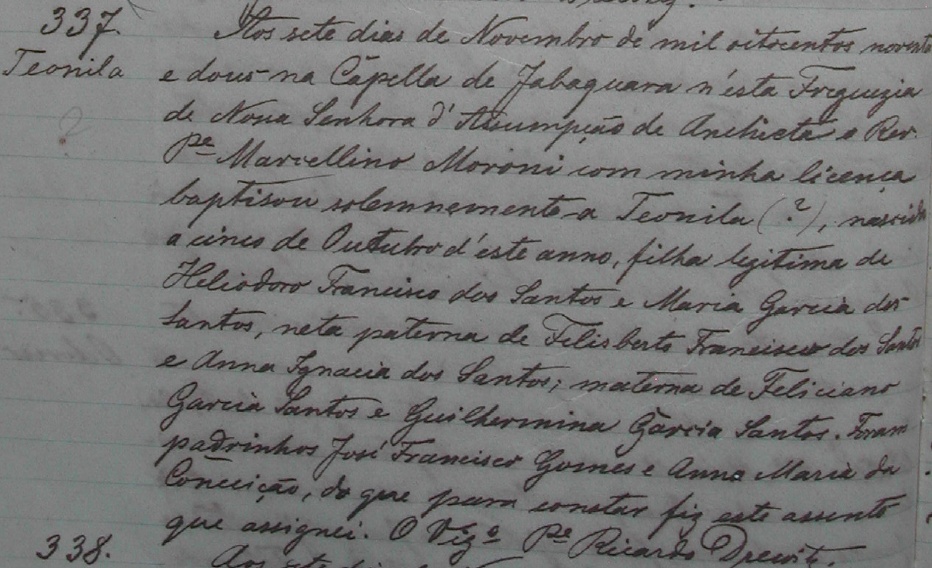 337.
Teonila
?
Aos sete dias de Novembro de mil oitocentos noventa
e dous na Capella de Jabaquara n'esta Freguezia
de Nossa Senhora d'Assumpção de Anchieta o Rev.
Pe Marcellino Moroni com minha licença
baptisou solemnemente a Teonila (?), nascida
a cinco de Outubro d'este anno, filha legitima de
Heliodoro Francisco dos Santos e Maria Garcia dos
Santos, neta paterna de Felisberto Francisco dos Santos
e Anna Ignacia dos Santos; materna de Feliciano
Garcia Santos e Guilhermina Garcia Santos. Foram
padrinhos José Francisco Gomes e Anna Maria da
Conceição, do que para constar fiz este assento
que assignei. O Vigº Pe Ricardo Drewitz.
338.
Aos sete dias de